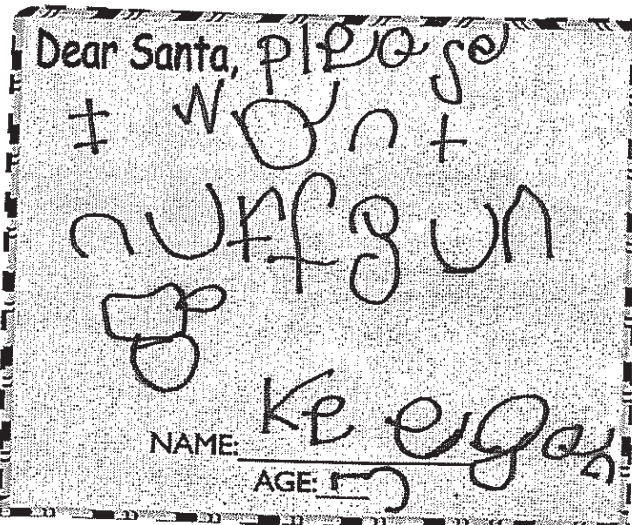 Dear Santa, please
I want
nurf gun
NAME: Keegan
AGE: 5